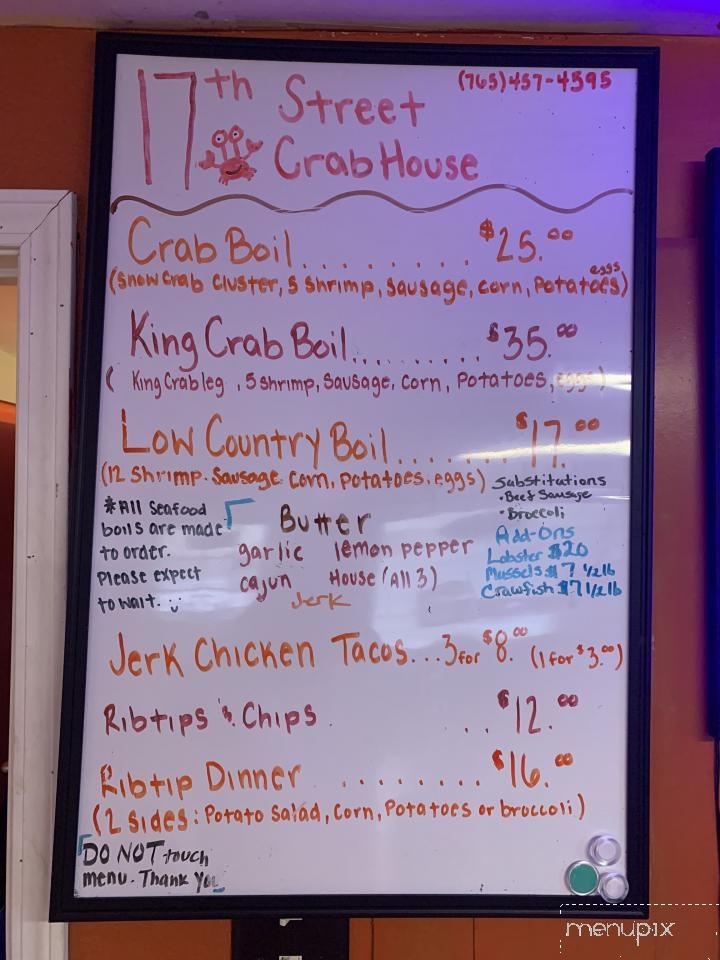 17th Street
(765)457-4595
Crab House
Crab Boil........ $25.00
(Snow Crab Cluster, 5 Shrimp, Sausage, corn, Potatoes, eggs)
King Crab Boil......... $35.00
( King Crab leg, 5 shrimp, Sausage, Corn, Potatoes, eggs)
Low Country Boil....... $17.00
(12 Shrimp. Sausage. Corn, potatoes, eggs)
Substitutions
• Beef Sausage
• Broccoli
*All Seafood
boils are made
to order.
Please expect
to wait. :)
Butter
garlic lemon pepper
cajun House (All 3)
Jerk
Add-Ons
Lobster $20
Mussels $7 1/2 lb
Crawfish $7 1/2 lb
Jerk Chicken Tacos...3 for $8.00 (1 for $3.00)
Ribtips & Chips .. $12.00
Ribtip Dinner ........ $16.00
(2 sides: Potato Salad, Corn, Potatoes or broccoli)
DO NOT touch
menu. Thank You
menupix